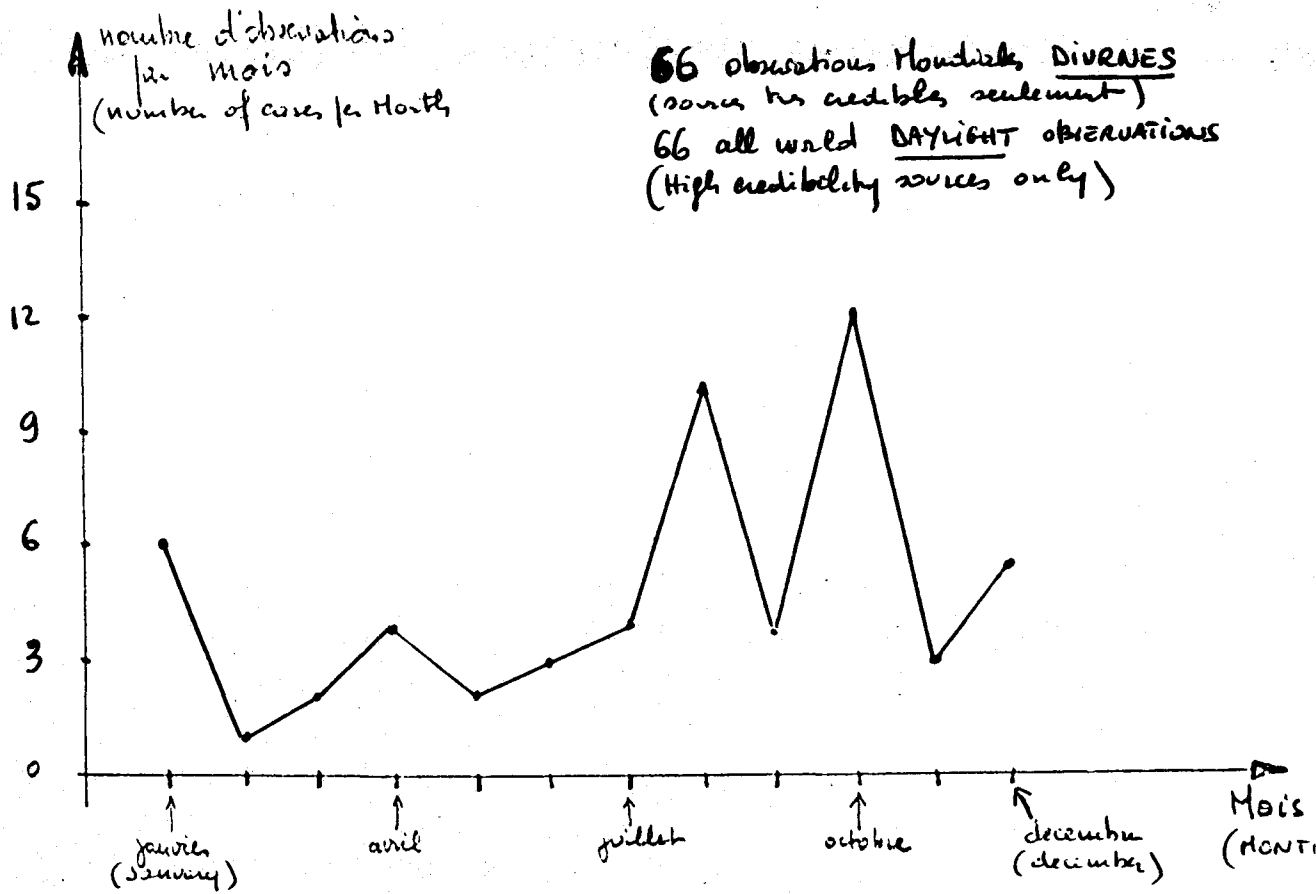 nombre d'observations
par mois
(number of cases per Month
66 observations Mondiales DIURNES
(sources tres credibles seulement)
66 all world DAYLIGHT OBSERVATIONS
(High credibility sources only)
15
12
9
6
3
0
janvier
(January)
avril
juillet
octobre
decembre
(december)
Mois
(MONTH